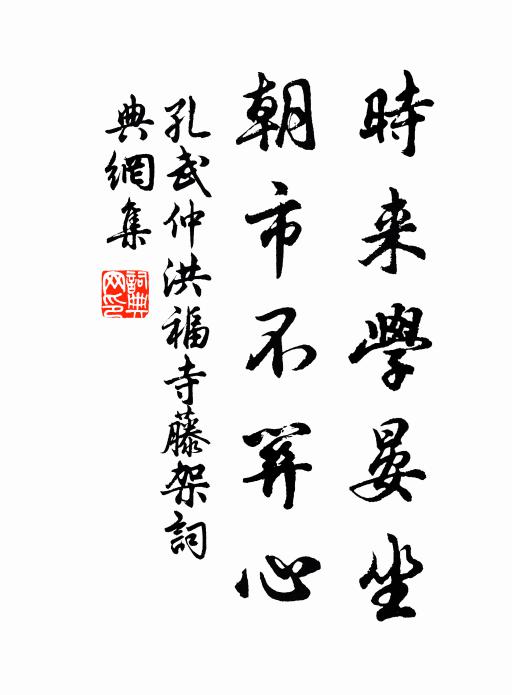 時来學晏坐
朝市不筭心
孔武仲洪福寺藤架詞
典網集
詞典
网印